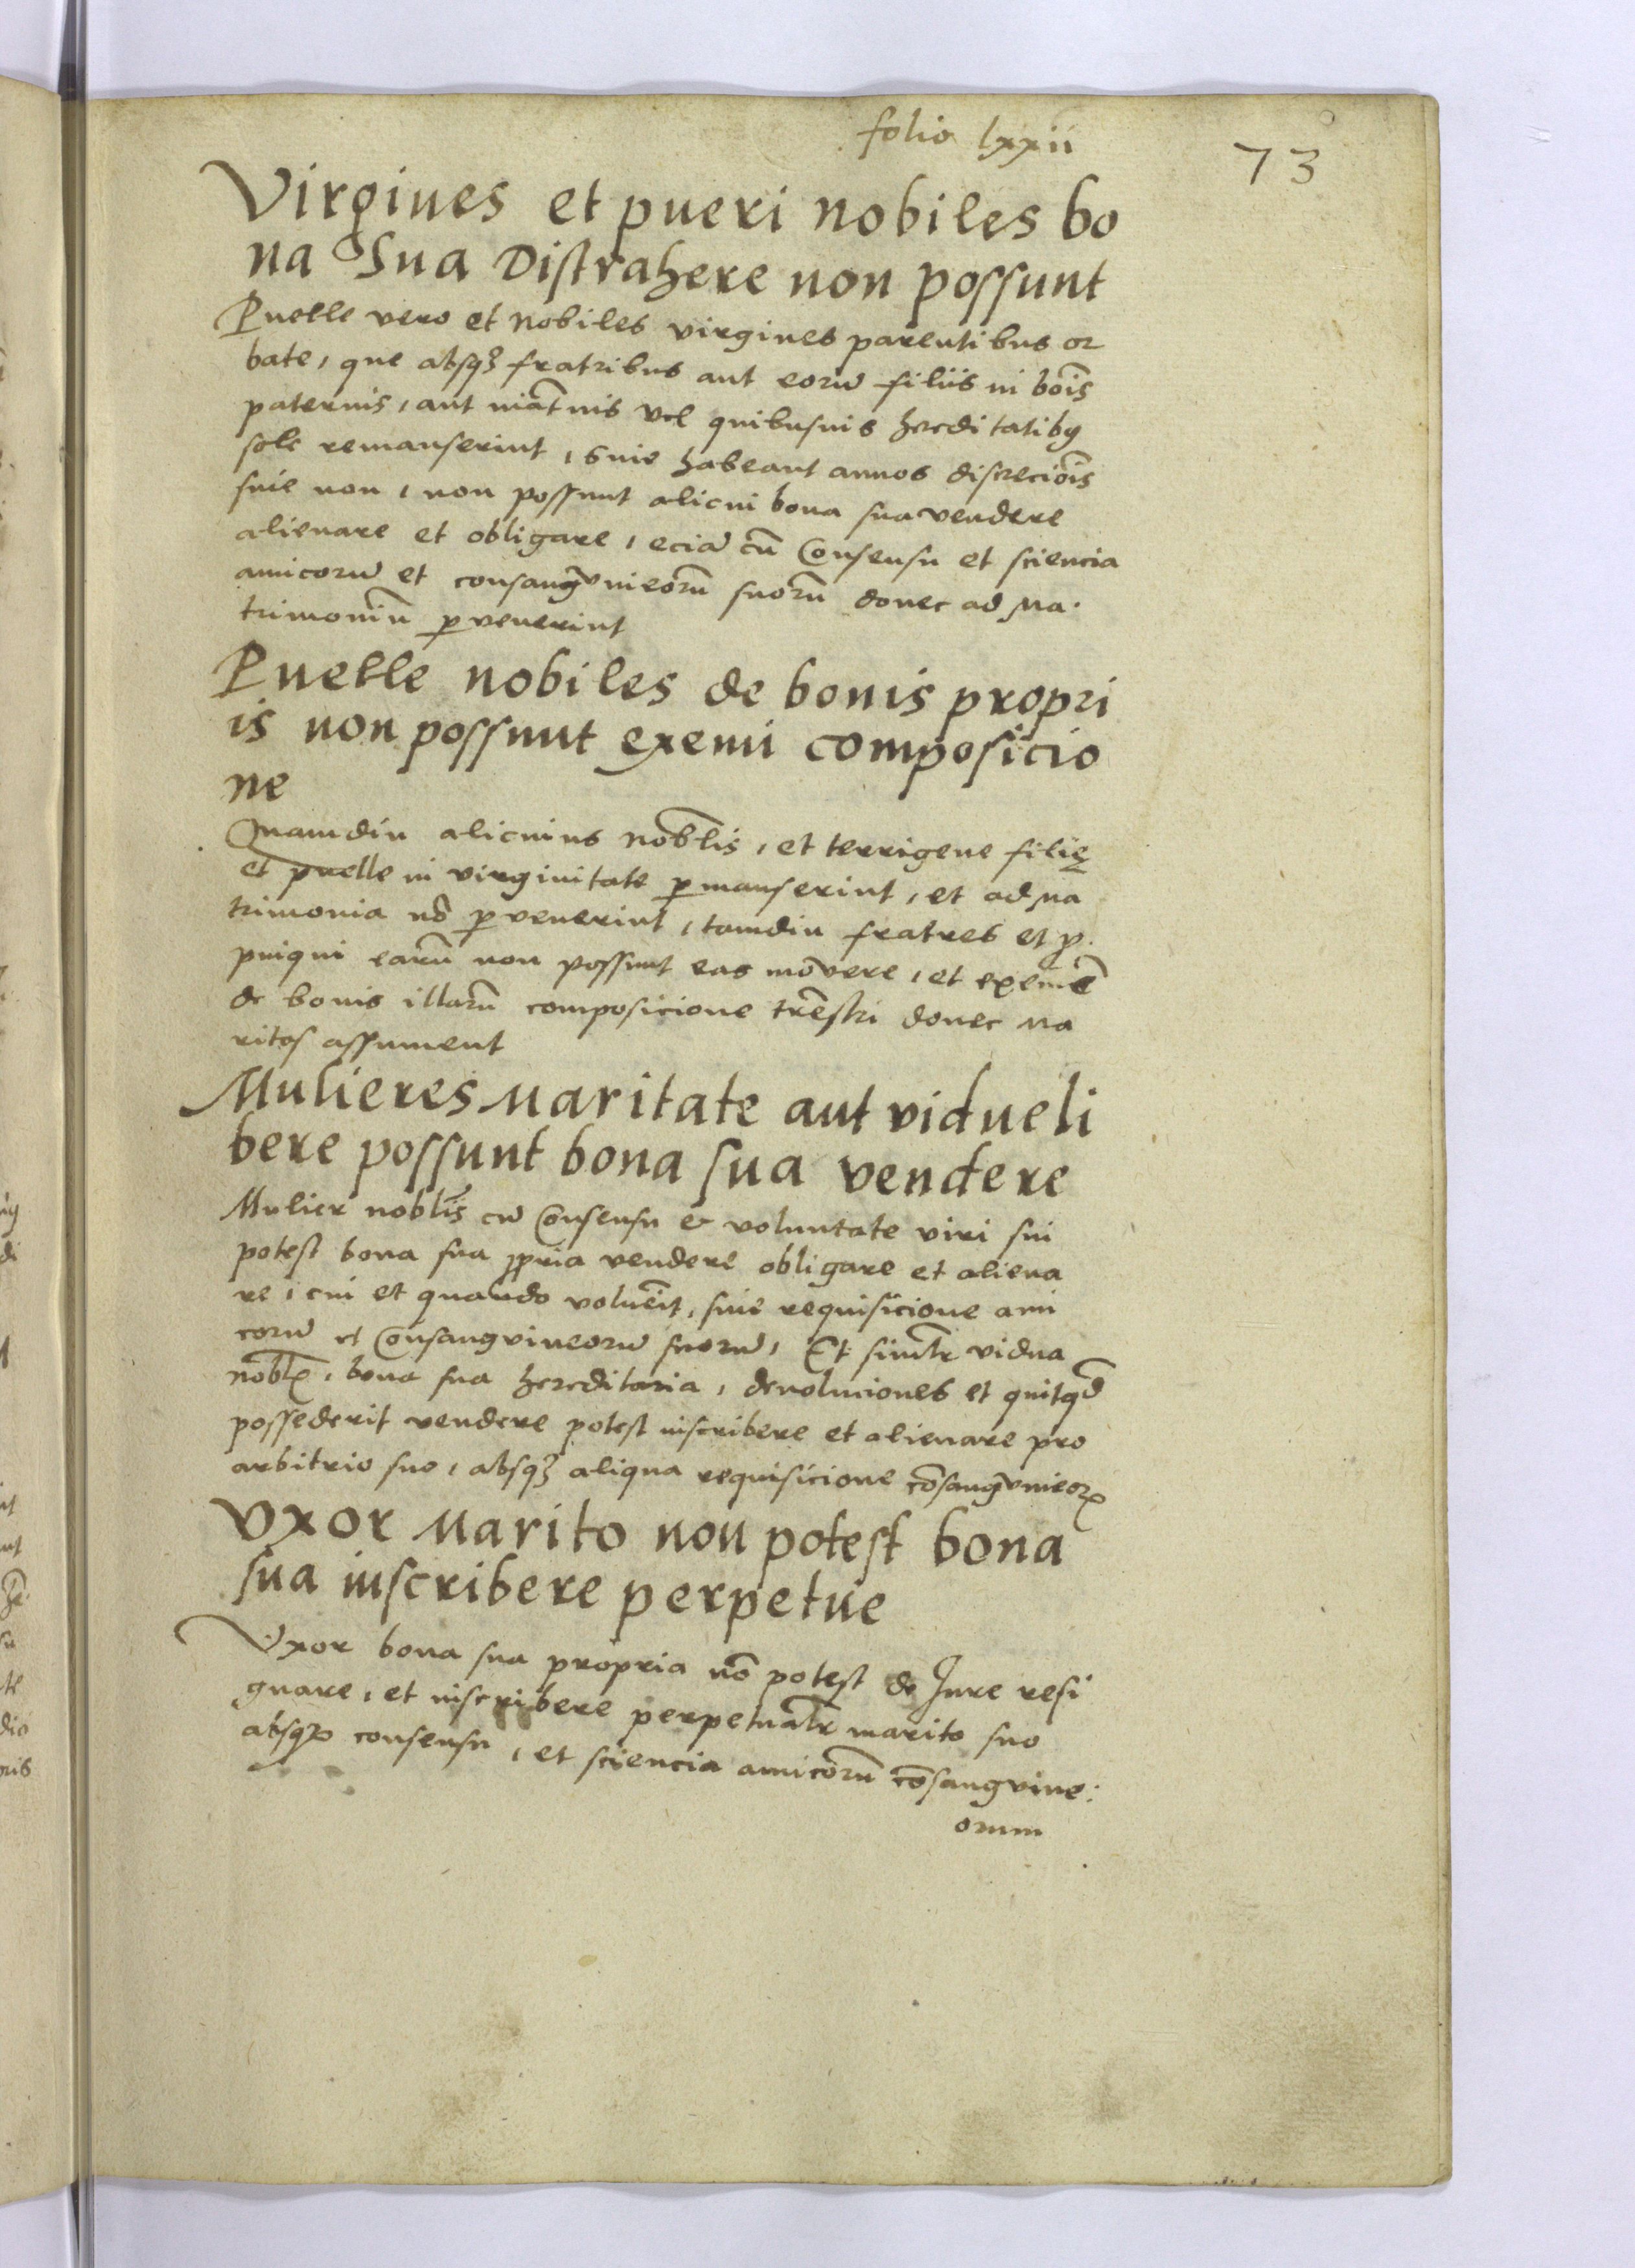 folio lxxii
73
Virgines et pueri nobiles bo
na Sua Distrahere non possunt
Puelle vero et nobiles virgines parentibus or
bate, que absqȝ fratribus aut eorū filiis in boīs
paternis, aut mat̄nis vel quibusuis hereditatibꝯ
sole remanserint, Siue habeant annos discrecioīs
siue non, non possunt alicui bona sua vendere
alienare et obligare, eciā cū Consensu et sciencia
amicorū et consangvineorū suorū donec ad Ma.
trimoniū ꝑvenerint
Puelle nobiles de bonis propri
is non possunt exemi composicio
ne
Quamdiu alicuius nob̄lis, et terrigene filię
et puelle in virginitate ꝑmanserint, et ad Ma
trimonia nō ꝑvenerint, tamdiu fratres et ꝓ.
pinqui earū non possunt eas movere, et exemē
de bonis illarū composicione trēstri donec Ma
ritos assument
Mulieres Maritate aut vidue li
bere possunt bona sua vendere
Mulier nobl̄is cū Consensu & voluntate viri sui
potest bona sua ꝓpria vendere obligare et aliena
re, cui et quando voluēit, sine requisicione ami
corū et Consangvineorū suorū, Et simlr̄ vidua
nobl̄, bona sua hereditaria, devoluciones et quitqđ
possederit vendere potest inscribere et alienare pro
arbitrio suo, absqȝ aliqua requisicione cōsangvineoꝝ
Vxor Marito non potest bona
sua inscribere perpetue
Vxor bona sua propria nō potest de Jure resi
gnare, et inscribere perpetualr̄ marito suo
absqȝ consensu, et sciencia amicorū cōsangvine:
orum